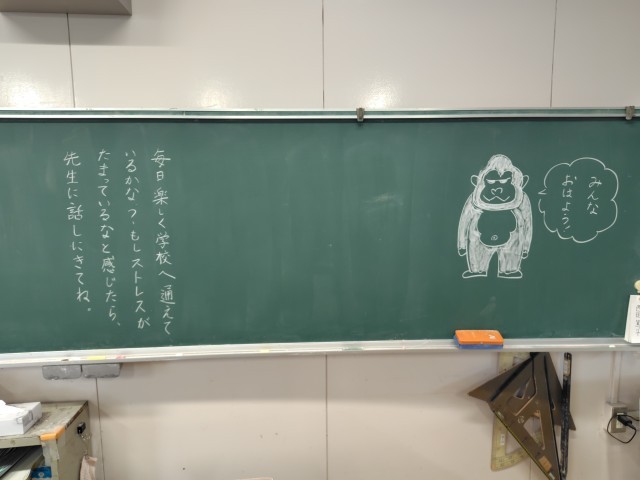 みんな
おはよう!
毎日楽しく学校へ通えて
いるかな?もしストレスが
たまっているなと感じたら、
先生に話しにきてね。